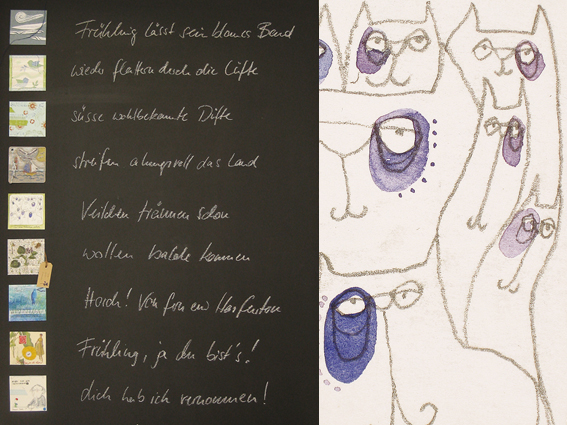 Frühling lässt sein blaues Band
wieder flattern durch die Lüfte
süsse wohlbekannte Düfte
streifen ahnungsvoll das Land
Veilchen träumen schon
wollen balde kommen
Horch! Von fern ein Harfenton
Frühling, ja du bist's!
dich hab ich vernommen!